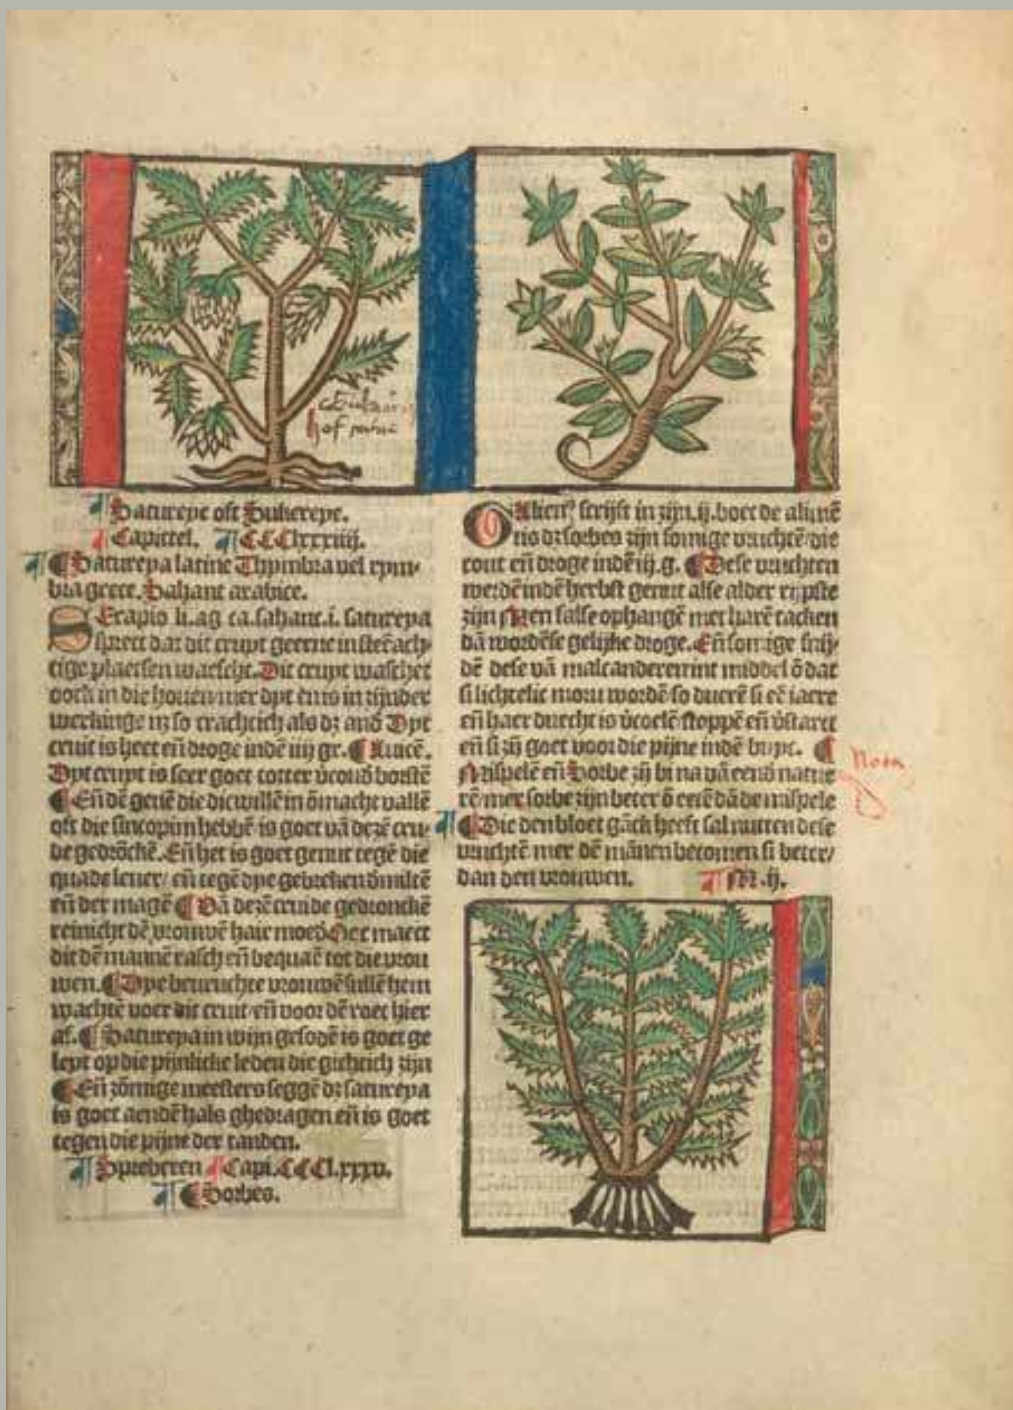 Satureye oft Sukereye.
Capittel. CCClxxxiiij.
Satureya latine Thymbra vel tym-
bra grece. Sahant arabice.
SErapio li. ag ca. sahant. i. satureya
sprect dat dit cruyt geerne in steēach-
tige plaetsen wasscht. Dit cruyt wasschet
oock in die houen mer dyt ēnis in zijnder
werckinge nz so crachtich als dz and Dyt
cruit is heet eñ droge indē iij gr. Auicē.
Dyt cruyt is seer goet totter vcoud borstē
Eñ dē genē die dicwillē in ōmacht vallē
oft die sincopim hebbē is goet vā dezē cru-
de gedrōckē. Eñ het is goet genut tegē die
quade leuer/ eñ tegē dye gebreken dmiltē
eñ der magē Vā dezē cruide gedronckē
reinicht dē vrouwē hair moed Het maect
dit dē mannē rasch eñ bequaē tot die vrou
wen. Dye beuruchte vrouwē sullē hem
wachtē voer dit cruit/ eñ voor dē roet hier
af. Satureya in wijn gesodē is goet ge
leyt op die pijnlicke leden die gichtich zijn
Eñ zōmige meesters seggē dz satureya
is goet aendē hals ghedragen eñ is goet
tegen die pijne der tanden.
Spreberen Capi. CCCl.xxxv.
Sorbes.
GAlienꝰ scrijft in zijn. ij. boec de alimē
tis dz sorbes zijn somige vruchtē/ die
cout eñ droge indē iij. g. Dese vruchten
werdē indē herbst genut alse alder rijpste
zijn Men salse ophangē met harē tacken
dā wordēse gelijke droge. Eñ somige snij-
dē dese vā malcanderen int middel ō dat
si lichtelic moru wordē so duerē si eē iaere
eñ haer duecht is vcoelē stoppē eñ vstarct
eñ si zij goet voor die pijne indē buyc.
Mispelē eñ Sorbe zij bi na vā eend natue
rē mer sorbe zijn beter ō etē dā de mispele
Die den bloet gāck heeft sal nutten dese
vruchtē mer dē mānen becomen si beter/
dan den vrouwen. M. ij.
Nota
hof